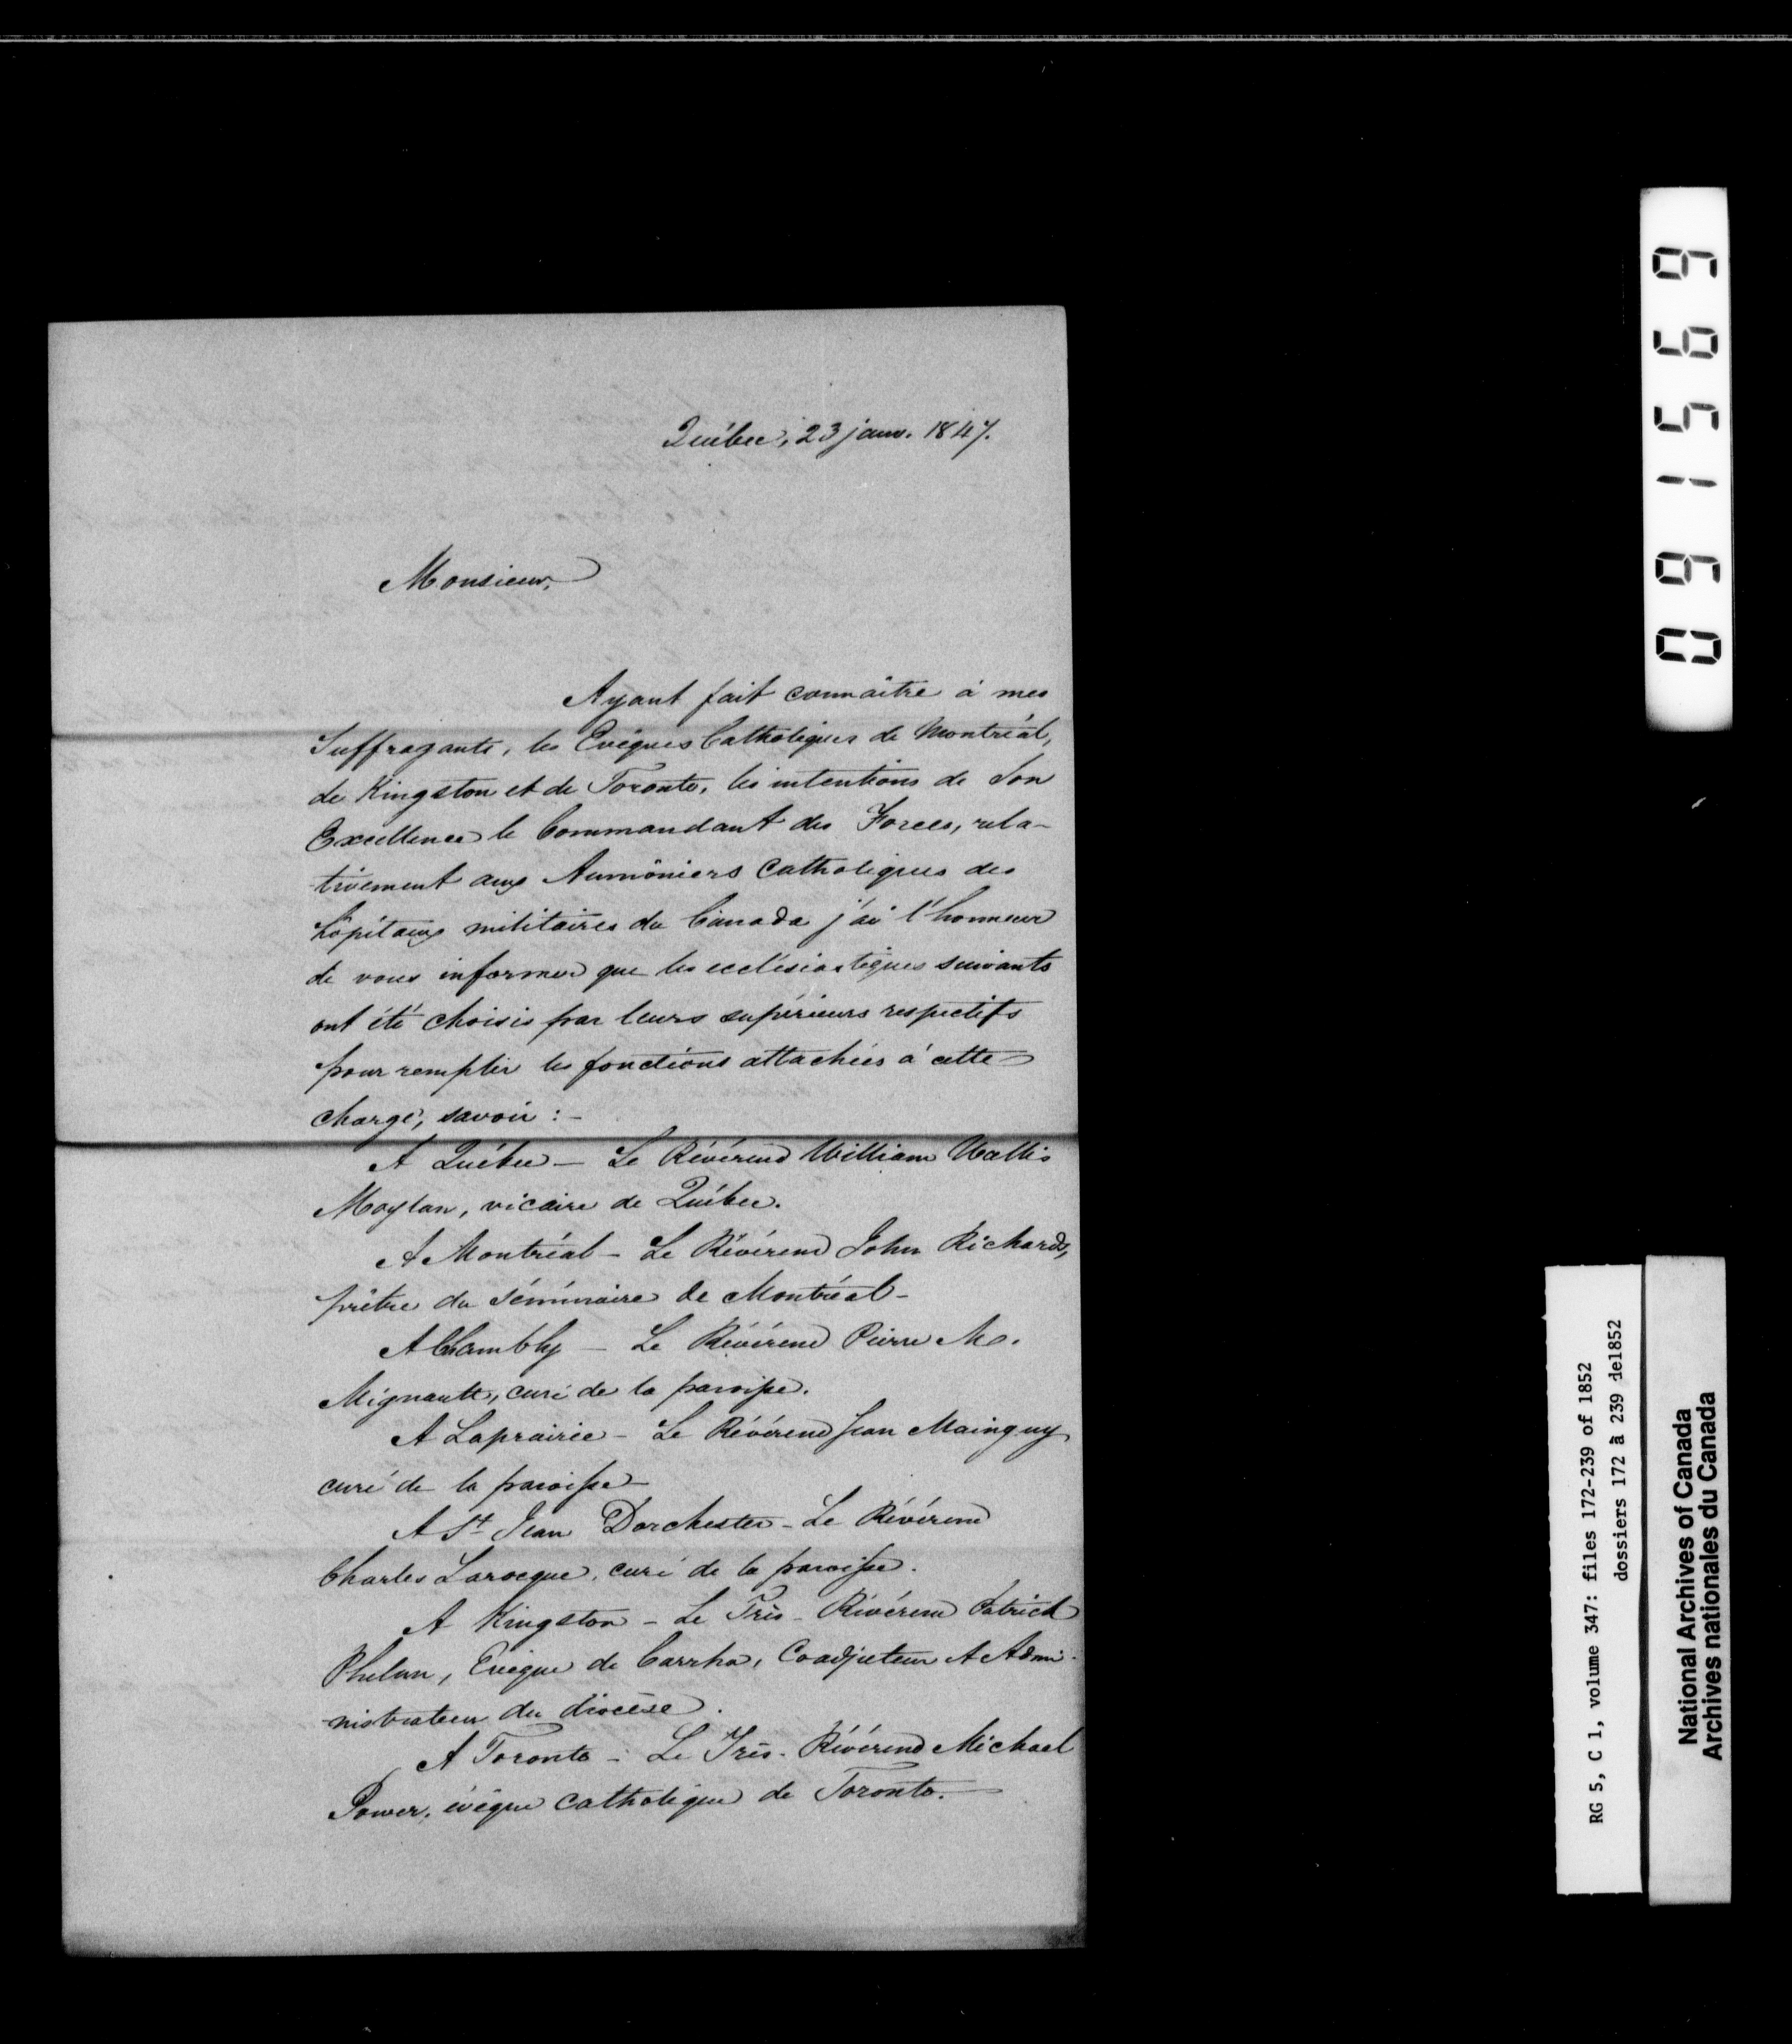 Québec, 23 janv. 1847.
Monsieur,
Ayant fait connaître à mes
Suffragants, les Evêques Catholiques de Montréal,
de Kingston et de Toronto, les intentions de Son
Excellence le Commandant des Forces, rela-
tivement aux Aumôniers Catholiques des
hôpitaux militaires du Canada j'ai l'honneur
de vous informer que les ecclésiastiques suivants
ont été choisis par leurs supérieurs respectifs
pour remplir les fonctions attachées à cette
charge, savoir :-
A Québec - Le Révérend William Wallis
Moylan, vicaire de Québec.
A Montréal - Le Révérend John Richards,
prêtre du séminaire de Montréal -
A Chambly - Le Révérend Pierre M.
Mignault, curé de la paroisse.
A Laprairie - Le Révérend Jean Mainguy
curé de la paroisse -
A St Jean Dorchester - Le Révérend
Charles Larocque, curé de la paroisse.
A Kingston - Le Très-Révérend Patrick
Phelan, Evêque de Carrha, Coadjuteur et Admi-
nistrateur du diocèse.
A Toronto - Le Très-Révérend Michael
Power, évêque catholique de Toronto. -
091569
RG 5, C 1, volume 347: files 172-239 of 1852
dossiers 172 à 239 de1852
National Archives of Canada
Archives nationales du Canada